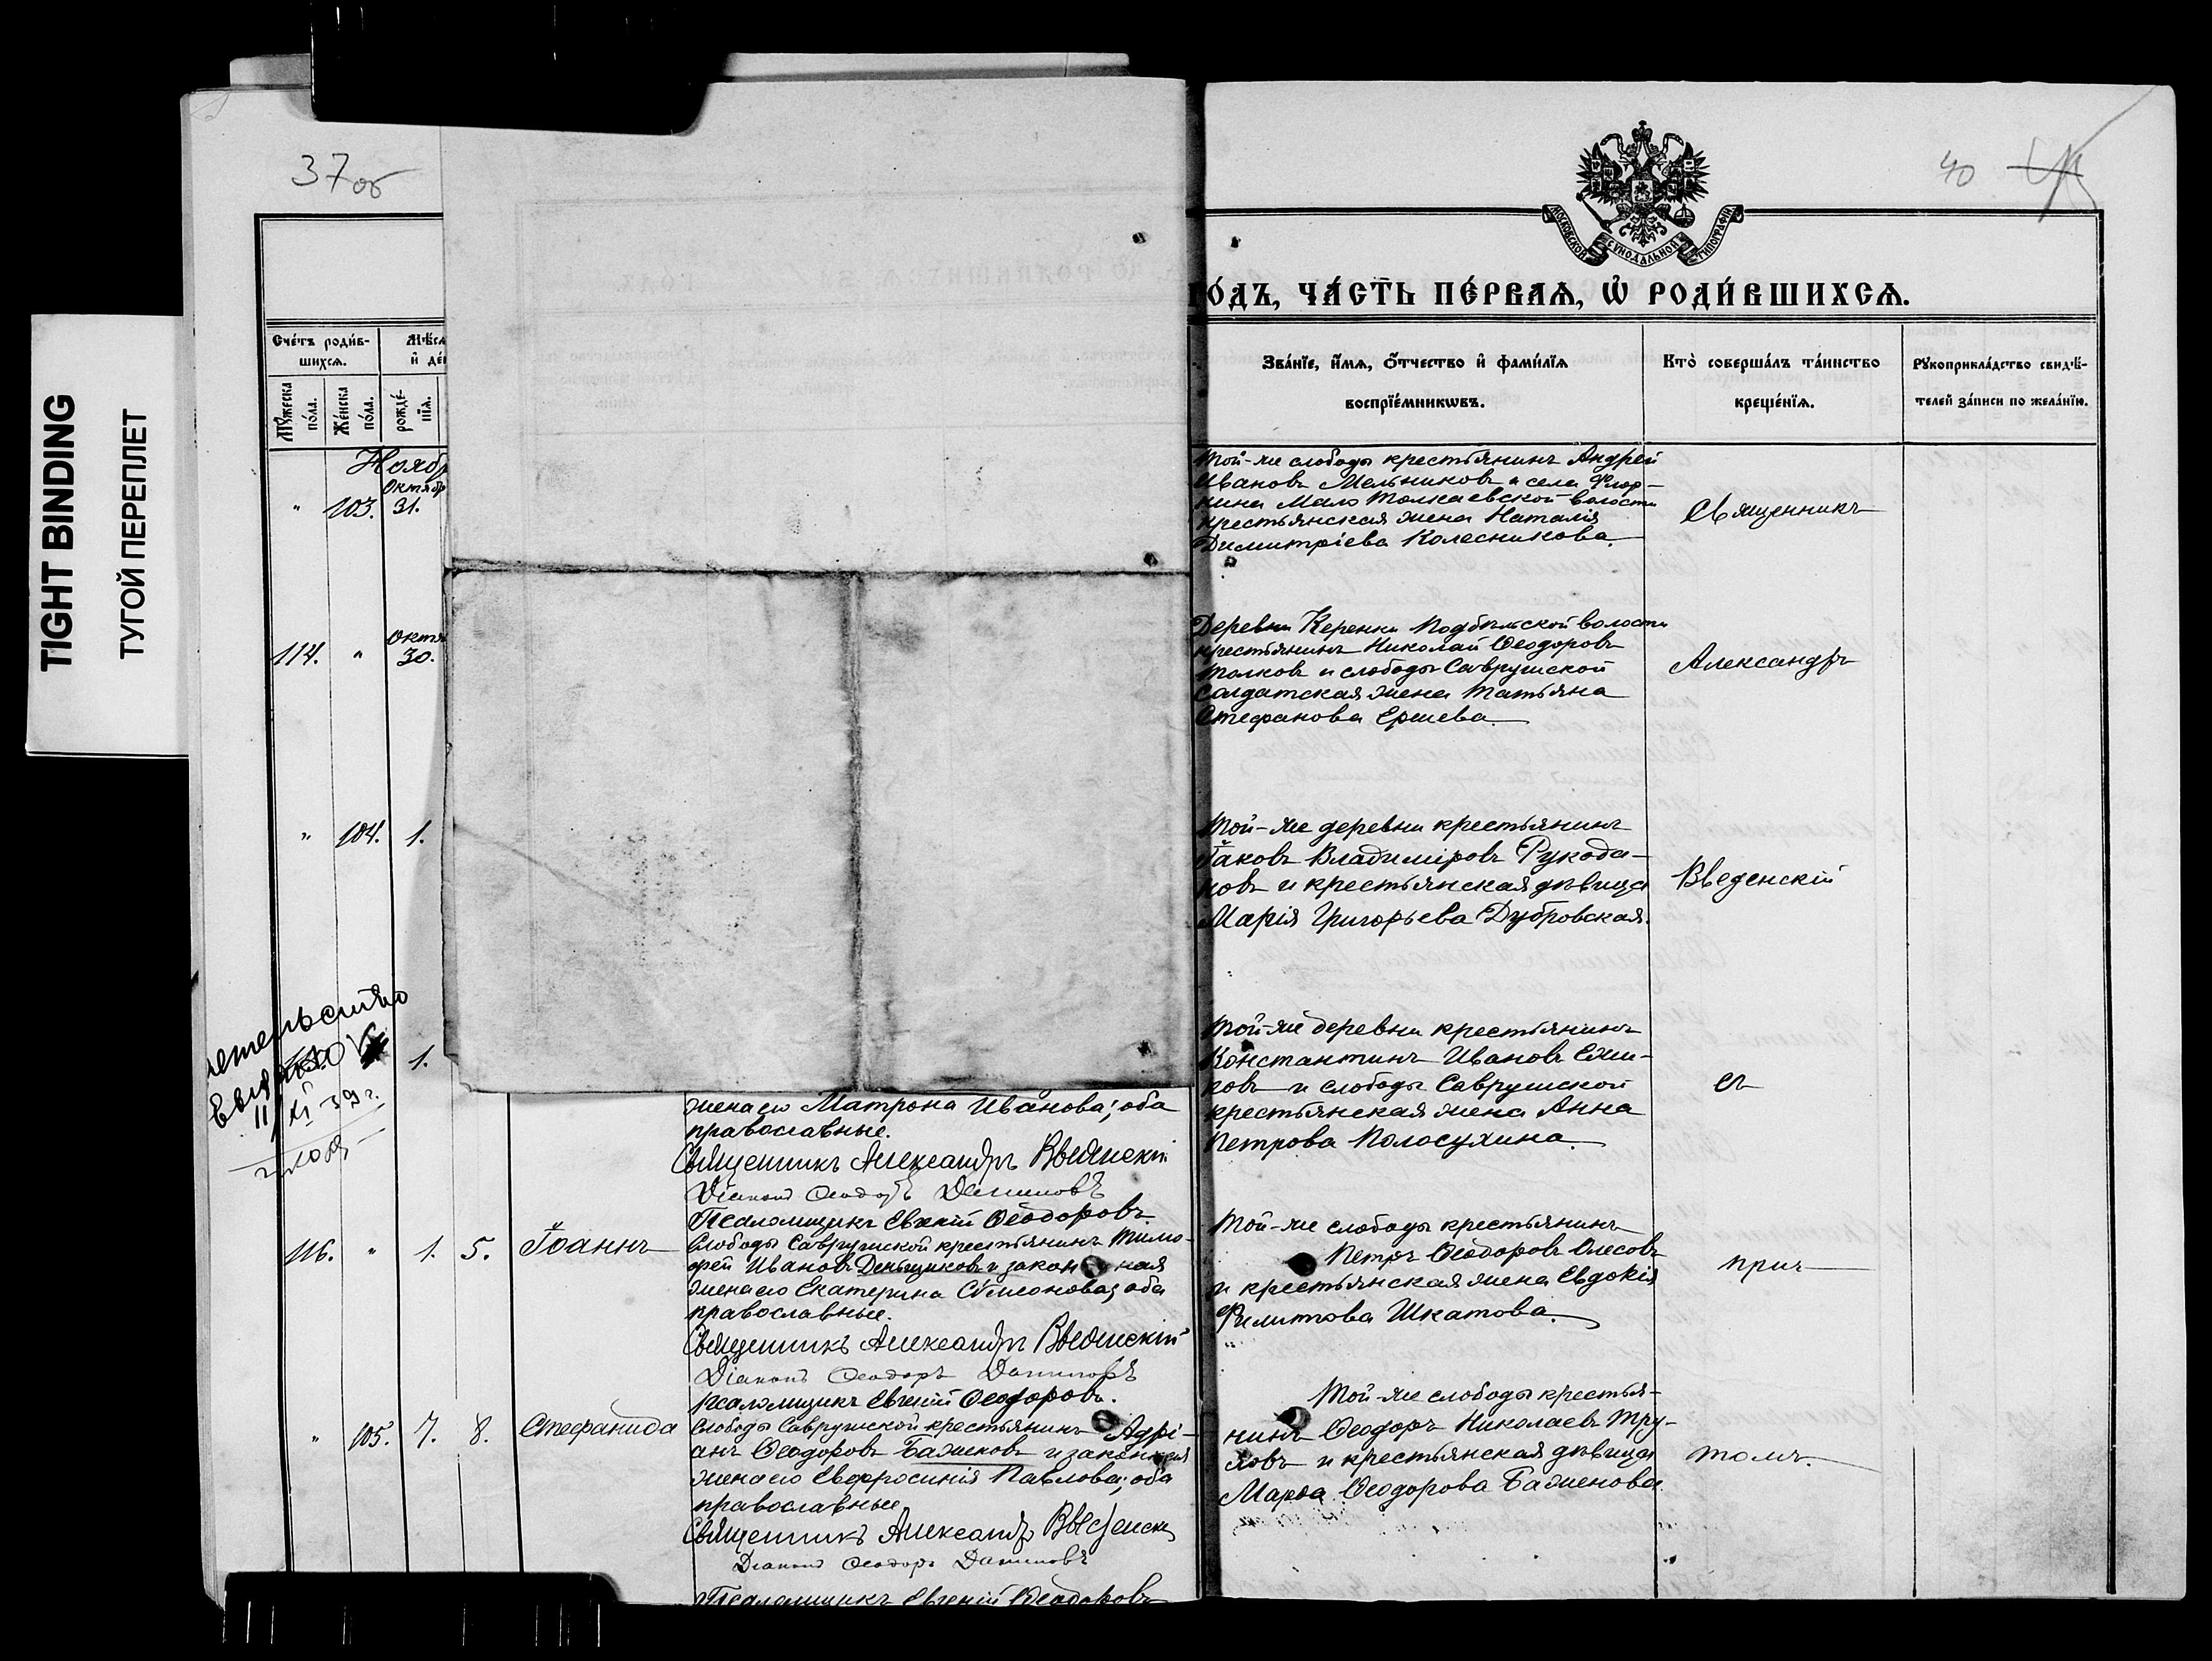 TIGHT BINDING
ТУГОЙ ПЕРЕПЛЕТ
37об
Сче́тъ роди́в-
шихсѧ.
Мѣ́сѧ
и҆ де́
Мꙋ́жеска
по́ла.
Же́нска
по́ла.
рожде́-
нїѧ.
Ноябр
Октябр
" 103. 31.
Октя
114. " 30.
" 104. 1.
1.
11/XI-39 г.
жена его Матрона Иванова; оба
православные.
Священникъ Александръ Введенскій
Діаконъ Ѳеодоръ Даниловъ
Псаломщикъ Евгеній Ѳеодоровъ.
116. " 1. 5. Іоаннъ
Слободы Саврушской крестьянинъ Тимо-
фей Ивановъ Деньщиковъ и законная
жена его Екатерина Сѵмеонова; оба
православные.
Священникъ Александръ Введенскій
Діаконъ Ѳеодоръ Даниловъ
Псаломщикъ Евгеній Ѳеодоровъ.
" 105. 7. 8. Стефанида
Слободы Саврушской крестьянинъ Адрі-
анъ Ѳеодоровъ Баженовъ и законная
жена его Евфросинія Павлова; оба
православные.
Священникъ Александръ Введенск
Діаконъ Ѳеодоръ Даниловъ
Псаломщикъ Евгеній Ѳеодоровъ
40
МОСКОВСКОЙ СѴНОДАЛЬНОЙ ТИПОГРАФІИ
ГО́ДЪ, ЧА́СТЬ ПЕ́РВАѦ, Ѡ҆ РОДИ́ВШИХСѦ.
Зва́нїе, и҆́мѧ, ѻ҆́тчество и҆ фами́лїѧ
воспрїе́мникѡвъ.
Кто̀ соверша́лъ та́инство
креще́нїѧ.
Рꙋкоприкла́дство свидѣ́-
телей за́писи по жела́нїю.
Той-же слободы крестьянинъ Андрей
Ивановъ Мельниковъ и села Флор-
кина Мало Толкаевской волости
крестьянская жена Наталія
Димитріева Колесникова.
Священникъ
Деревни Керенки Подбѣльской волости
крестьянинъ Николай Ѳеодоровъ
Толковъ и слободы Саврушской
солдатская жена Татьяна
Стефанова Ершева.
Александръ
Той-же деревни крестьянинъ
Іаковъ Владиміровъ Рукода-
новъ и крестьянская дѣвица
Марія Григорьева Дубровская.
Введенскій
Той-же деревни крестьянинъ
Константинъ Ивановъ Ежи-
ковъ и слободы Саврушской
крестьянская жена Анна
Петрова Полосухина.
съ
Той-же слободы крестьянинъ
Петръ Ѳеодоровъ Олесовъ
и крестьянская жена Евдокія
Филиппова Шкатова.
прич
Той-же слободы крестья-
нинъ Ѳеодоръ Николаевъ Тру-
ховъ и крестьянская дѣвица
Марѳа Ѳеодорова Баженова.
томъ.